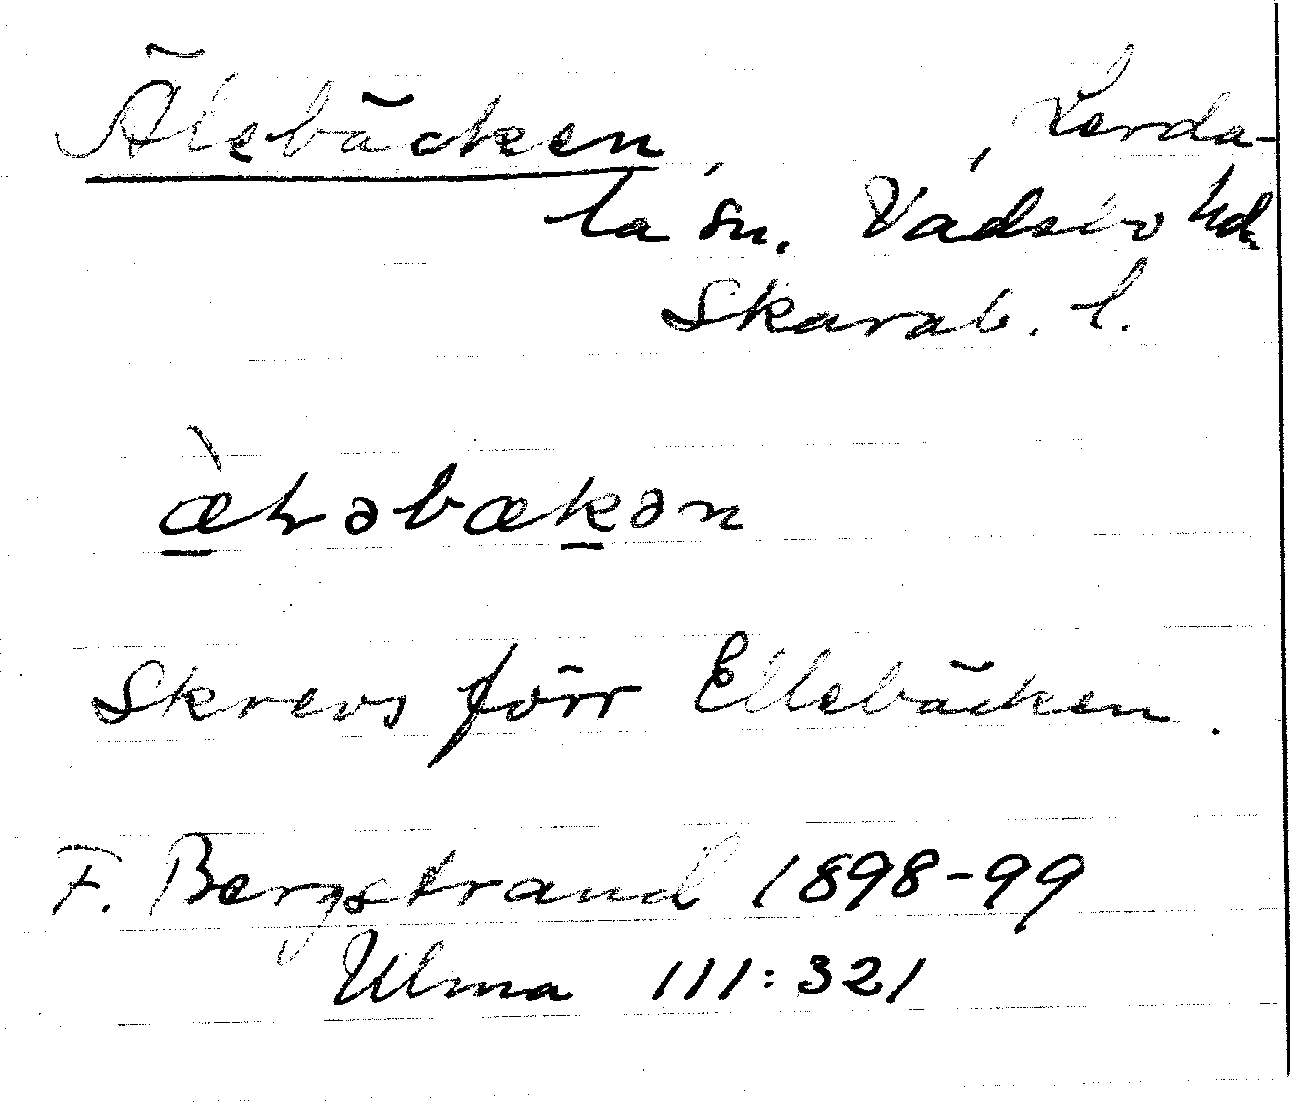 Älsbäcken, , Lerda-
la sn. Vadsbo hd
Skarab. l.
æ̀ɫəbækən
Skrevs förr Ellsbäcken.
F. Bergstrand 1898-99
Ulma 111:321